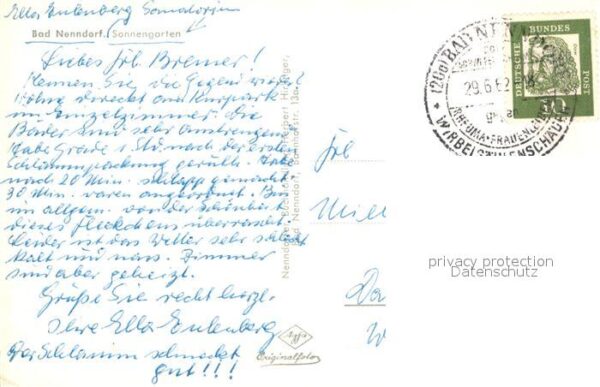 Ella Eulenberg Sanatorium
Bad Nenndorf, Sonnengarten
Liebes Frl. Bremer!
Kennen Sie die Gegend
Wohne direkt am Kurpark
im Einzelzimmer. Die
Bäder sind sehr anstrengend.
Habe Grade 1 Stu. nach der ersten
Schlammpackung geruht. Habe
nach 20 Min. schlapp gemacht.
30 Min. waren angeordnet. Bin
im allgem. von der Schönheit
dieses Fleckchens überrascht.
Leider ist das Wetter sehr schlecht
kalt und nass. Zimmer
sind aber geheizt.
Grüße Sie recht herzl.
Ihre Ella Eulenberg
Der Schlamm schmeckt
gut!!!
Nenndorfer Buchdruckerei
Bad Nenndorf, Bahnhofstr. 13a
Agfa
Originalfoto
Frl
(20a) BAD NENNDORF
29.6.62
RHEUMA · FRAUENLEIDEN
WIRBELSÄULENSCHÄDEN
DEUTSCHE BUNDES POST
10
privacy protection
Datenschutz